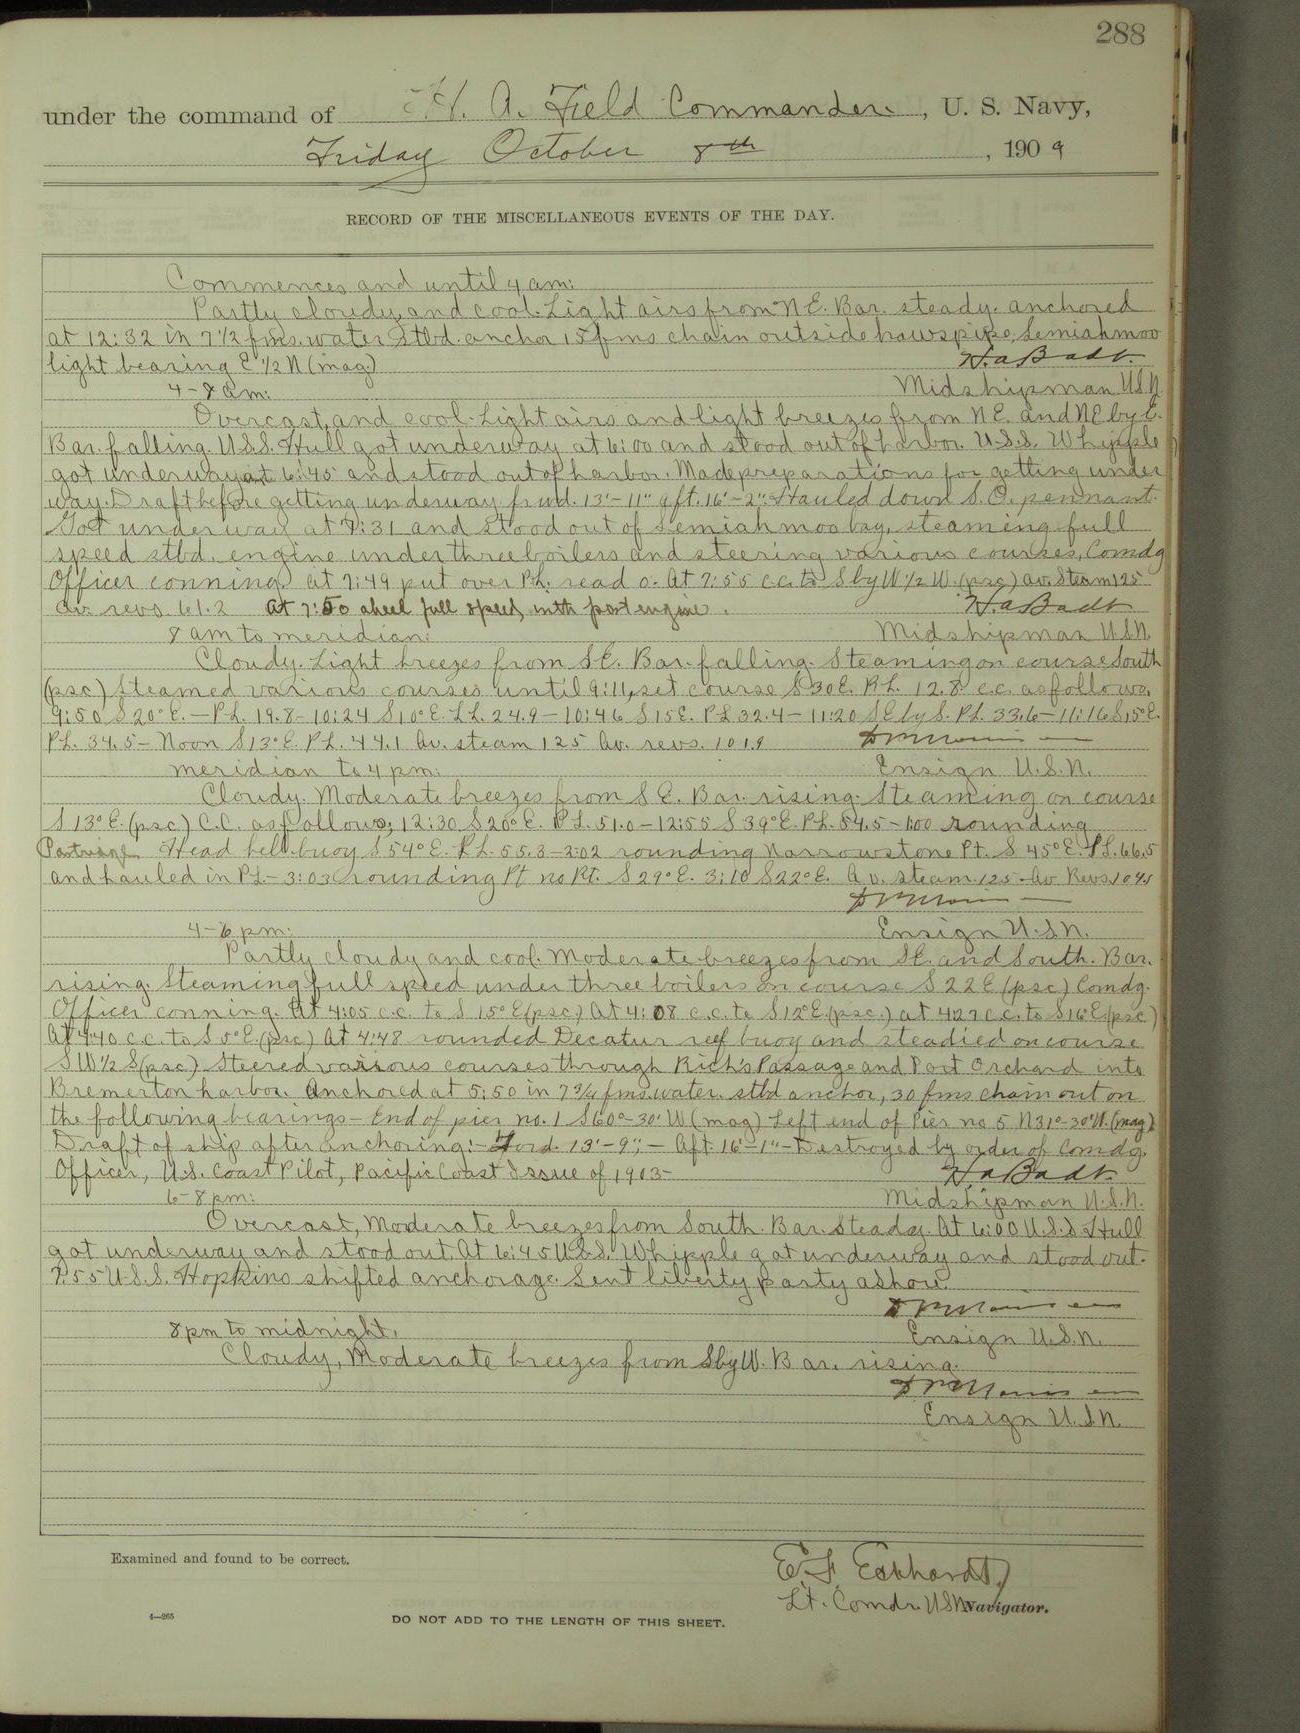 288
under the command of H. A. Field Commander, U. S. Navy,
Friday October 8th, 1909
RECORD OF THE MISCELLANEOUS EVENTS OF THE DAY.
Commences and until 4 am:
Partly cloudy and cool. Light airs from NE. Bar. steady. anchored
at 12:32 in 7 1/2 fms. water stbd. anchor 15 fms chain outside hawspipe, Semiahmoo
light bearing E 1/2 N (mag.) H.a Badt.
4-8 am: Midshipman U.S.N.
Overcast, and cool. Light airs and light breezes from NE. and NE by E.
Bar. falling. U.S.S. Hull got underway at 6:00 and stood out of harbor. U.S.S. Whipple
got underway at 6:45 and stood out of harbor. Made preparations for getting under
way. Draft before getting underway frwd. 13'-11" aft. 16'-2". Hauled down S.O. pennant.
Got under way at 7:31 and stood out of Semiahmoo bay, steaming full
speed stbd. engine under three boilers and steering various courses, Comdg
Officer conning. at 7:49 put over P.L. read 0. At 7:55 c.c. to S by W 1/2 W. (psc) av. Steam 125
av. revo. 61.2 at 7:50 ahead full speed with port engine. H.a Badt
8 am to meridian: Midshipman U.S.N.
Cloudy. Light breezes from SE. Bar. falling. Steaming on course South
(psc) Steamed various courses until 9:11, set course S 30 E. P.L. 12.8 c.c. as follows.
9:50 S 20° E. — P.L. 19.8 - 10:24 S 10° E. P.L. 24.9 - 10:46 S 15 E. P.L 32.4 - 11:20 SE by S. P.L. 33.6 - 11:16 S 15° E.
P.L. 34.5 - Noon S 13° E. P.L. 44.1 Av. steam 125 Av. revs. 101.9
meridian to 4 pm: Ensign U.S.N.
Cloudy. Moderate breezes from SE. Bar. rising. Steaming on course
S 13° E. (psc) C.C. as follows; 12:30 S 20° E. P.L. 51.0 - 12:55 S 39° E. P.L. 54.5 - 1:00 rounding
Partridge Head bell buoy S 54° E. P.L. 55.3 - 2:02 rounding Marrowstone Pt. S 45° E. P.L. 66.5
and hauled in P.L. - 3:03 rounding Pt no Pt. S 29° E. 3:10 S 22° E. Av. steam. 125 - Av Revs.
4-6 pm: Ensign U.S.N.
Partly cloudy and cool. Moderate breezes from SE. and South. Bar.
rising. Steaming full speed under three boilers on course S 22 E (psc) Comdg.
Officer conning. At 4:05 c.c. to S 15° E (psc) At 4:08 c.c. to S 12° E. (psc.) at 4:27 c.c. to S 16° E (psc)
At 4:40 c.c. to S 5° E. (psc) At 4:48 rounded Decatur reef buoy and steadied on course
SW 1/2 S (psc) Steered various courses through Rich's Passage and Port Orchard into
Bremerton harbor. Anchored at 5:50 in 7 3/4 fms. water. stbd anchor, 30 fms chain out on
the following bearings - End of pier no. 1 S 60°-30' W (mag) Left end of Pier no. 5 N 31°-30' W. (mag)
Draft of ship after anchoring: - Ford. 13'-9"; - Aft. 16'-1" - Destroyed by order of Comdg.
Officer, U.S. Coast Pilot, Pacific Coast Issue of 1903 - H.a Badt.
6-8 pm: Midshipman U.S.N.
Overcast, Moderate breezes from South. Bar. Steady. At 6:00 U.S.S Hull
got underway and stood out. At 6:45 U.S.S. Whipple got underway and stood out.
7:55 U.S.S. Hopkins shifted anchorage. Sent liberty party ashore.
8 pm to midnight. Ensign U.S.N.
Cloudy, Moderate breezes from S by W. Bar. rising.
Ensign U.S.N.
Examined and found to be correct.
E. F. Eckhardt,
Lt. Comdr. U.S.N. Navigator.
4—265
DO NOT ADD TO THE LENGTH OF THIS SHEET.